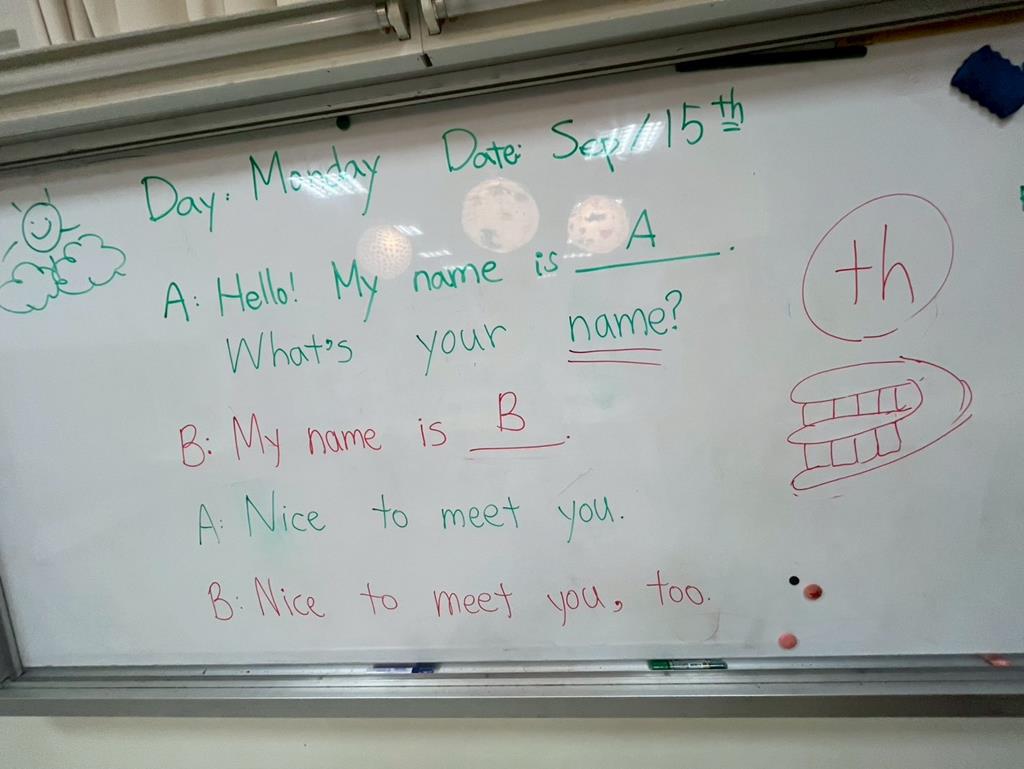 Day: Monday Date: Sep/15th
A: Hello! My name is A.
What's your name?
B: My name is B.
A: Nice to meet you.
B: Nice to meet you, too.
th